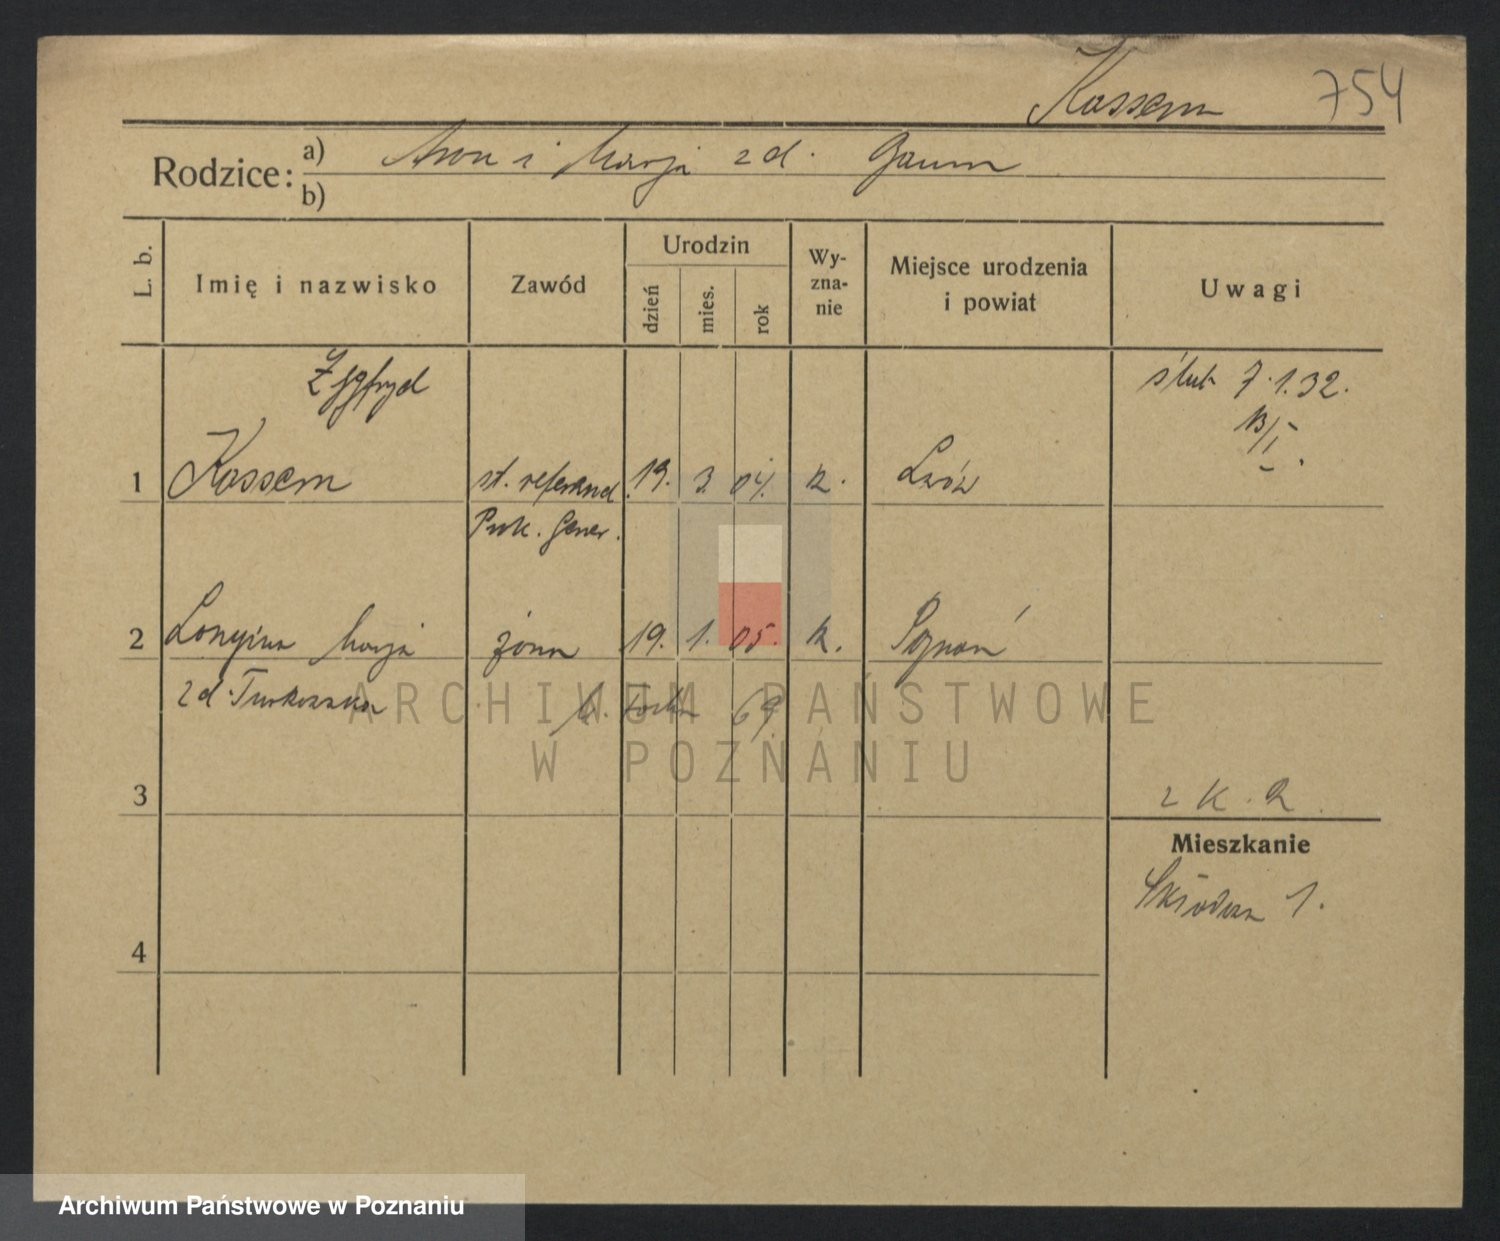 Kassem 754
Rodzice: a) Aron i Marja zd. Gaum
b)
L. b. Imię i nazwisko Zawód Urodzin dzień mies. rok Wy-zna-nie Miejsce urodzenia i powiat Uwagi
Zygfryd ślub 7.1.32.
13/I.
1 Kassem st. referend 19. 3. 04. k. Lwów
Prok. Gener.
2 Longina Marja żona 19. 1. 05. k. Poznań
zd. Turkowska
69
ARCHIWUM PAŃSTWOWE
W POZNANIU
3 2 K. R.
Mieszkanie
Skłodow 1.
4
Archiwum Państwowe w Poznaniu